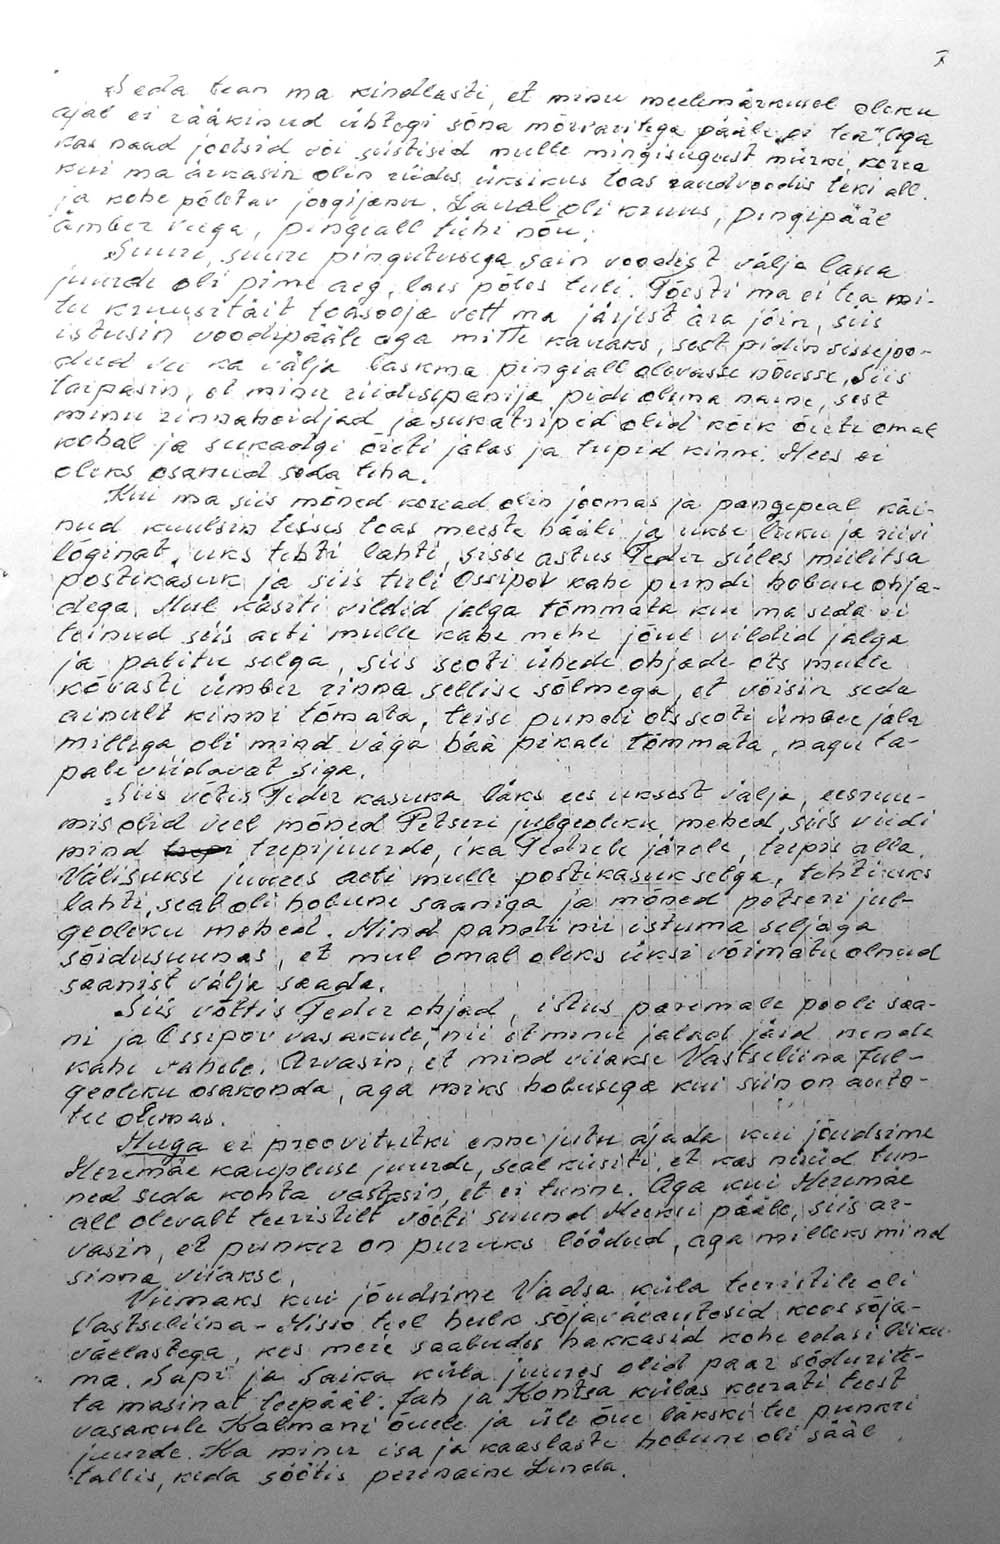 Seda tean ma kindlasti, et minu meelemärkusel oleku
ajal ei rääkinud ühtegi sõna mõrvaritega pääle „ei tea" aga
kas naad jootsid või süstisid mulle mingisugust mürki, korra
kui ma ärkasin olin riides üksikus toas raudvoodis teki all.
ja kohe põletav joogijanu. Laual oli kruus, pingipääl
ämber veega, pingiall tühi nõu.
Suure, suure pingutusega sain voodist välja laua
juurde oli pime aeg, laes põles tuli. Tõesti ma ei tea mi-
tu kruusitäit toasooja vett ma järjest ära jõin, siis
istusin voodipääle aga mitte kauaks, sest pidin sissejoo-
dud vee ka välja laskma pingiall olevasse nõusse. Siis
taipasin, et minu riidessepanija pidi olema naine, sest
minu rinnahoidjad ja sukatripid olid kõik õieti omal
kohal ja sukadgi õieti jalas ja tripid kinni. Mees ei
oleks osanud seda teha.
Kui ma siis mõned korrad olin joomas ja pangepeal käi-
nud kuulsin teises toas meeste hääli ja ukse luku ja riivi
lõginat, uks tehti lahti, sisse astus Feder süles miilitsa
postikasuk ja siis tuli Ossipov kahe pundi hobuse ohja-
dega. Mul kästi vildid jalga tõmmata kui ma seda ei
teinud siis aeti mulle kahe mehe jõul vildid jalga
ja palitu selga, siis seoti ühede ohjade ots mulle
kõvasti ümber rinna sellise sõlmega, et võisin seda
ainult kinni tõmata, teise pundi ots seoti ümber jala
millega oli mind väga hää pikali tõmmata, nagu ta-
pale viidavat siga.
Siis võttis Feder kasuka läks ees uksest välja, eesruu-
mis olid veel mõned Petseri julgeoleku mehed, siis viidi
mind trepijuurde, ika Federile järele, trepis alla.
Välisukse juures aeti mulle postikasuk selga, tehti uks
lahti, seal oli hobune saaniga ja mõned petseri jul-
geoleku mehed. Mind pandi nii istuma seljaga
sõidusuunas, et mul omal oleks üksi võimatu olnud
saanist välja saada.
Siis võttis Feder ohjad, istus paremale poole saa-
ni ja Ossipov vasakule, nii et minu jalad jäid nende
kahe vahele. Arvasin, et mind viiakse Vastseliina Jul-
geoleku osakonda, aga miks hobusega kui siin on auto-
tee olemas.
Muga ei proovitutki enne juttu ajada kui jõudsime
Meremäe kaupluse juurde, seal küsiti, et kas nüüd tun-
ned seda kohta vastasin, et ei tunne. Aga kui Meremäe
all olevalt teeristilt võeti suund Meeksi pääle, siis ar-
vasin, et punker on puruks löödud, aga milleks mind
sinna viiakse.
Viimaks kui jõudsime Vadsa küla teeristile oli
Vastseliina - Misso teel hulk sõjaväeautosid koos sõja-
väelastega, kes meie saabudes hakkasid kohe edasi liiku-
ma. Sapi ja Saika küla juures olid paar sõdurite-
ta masinat teepääl. Jah ja Kontsa külas keerati teest
vasakule Kalmani õuele ja üle õue läkski tee punkri
juurde. Ka minu isa ja kaaslaste hobune oli sääl
tallis, keda söötis perenaine Linda.